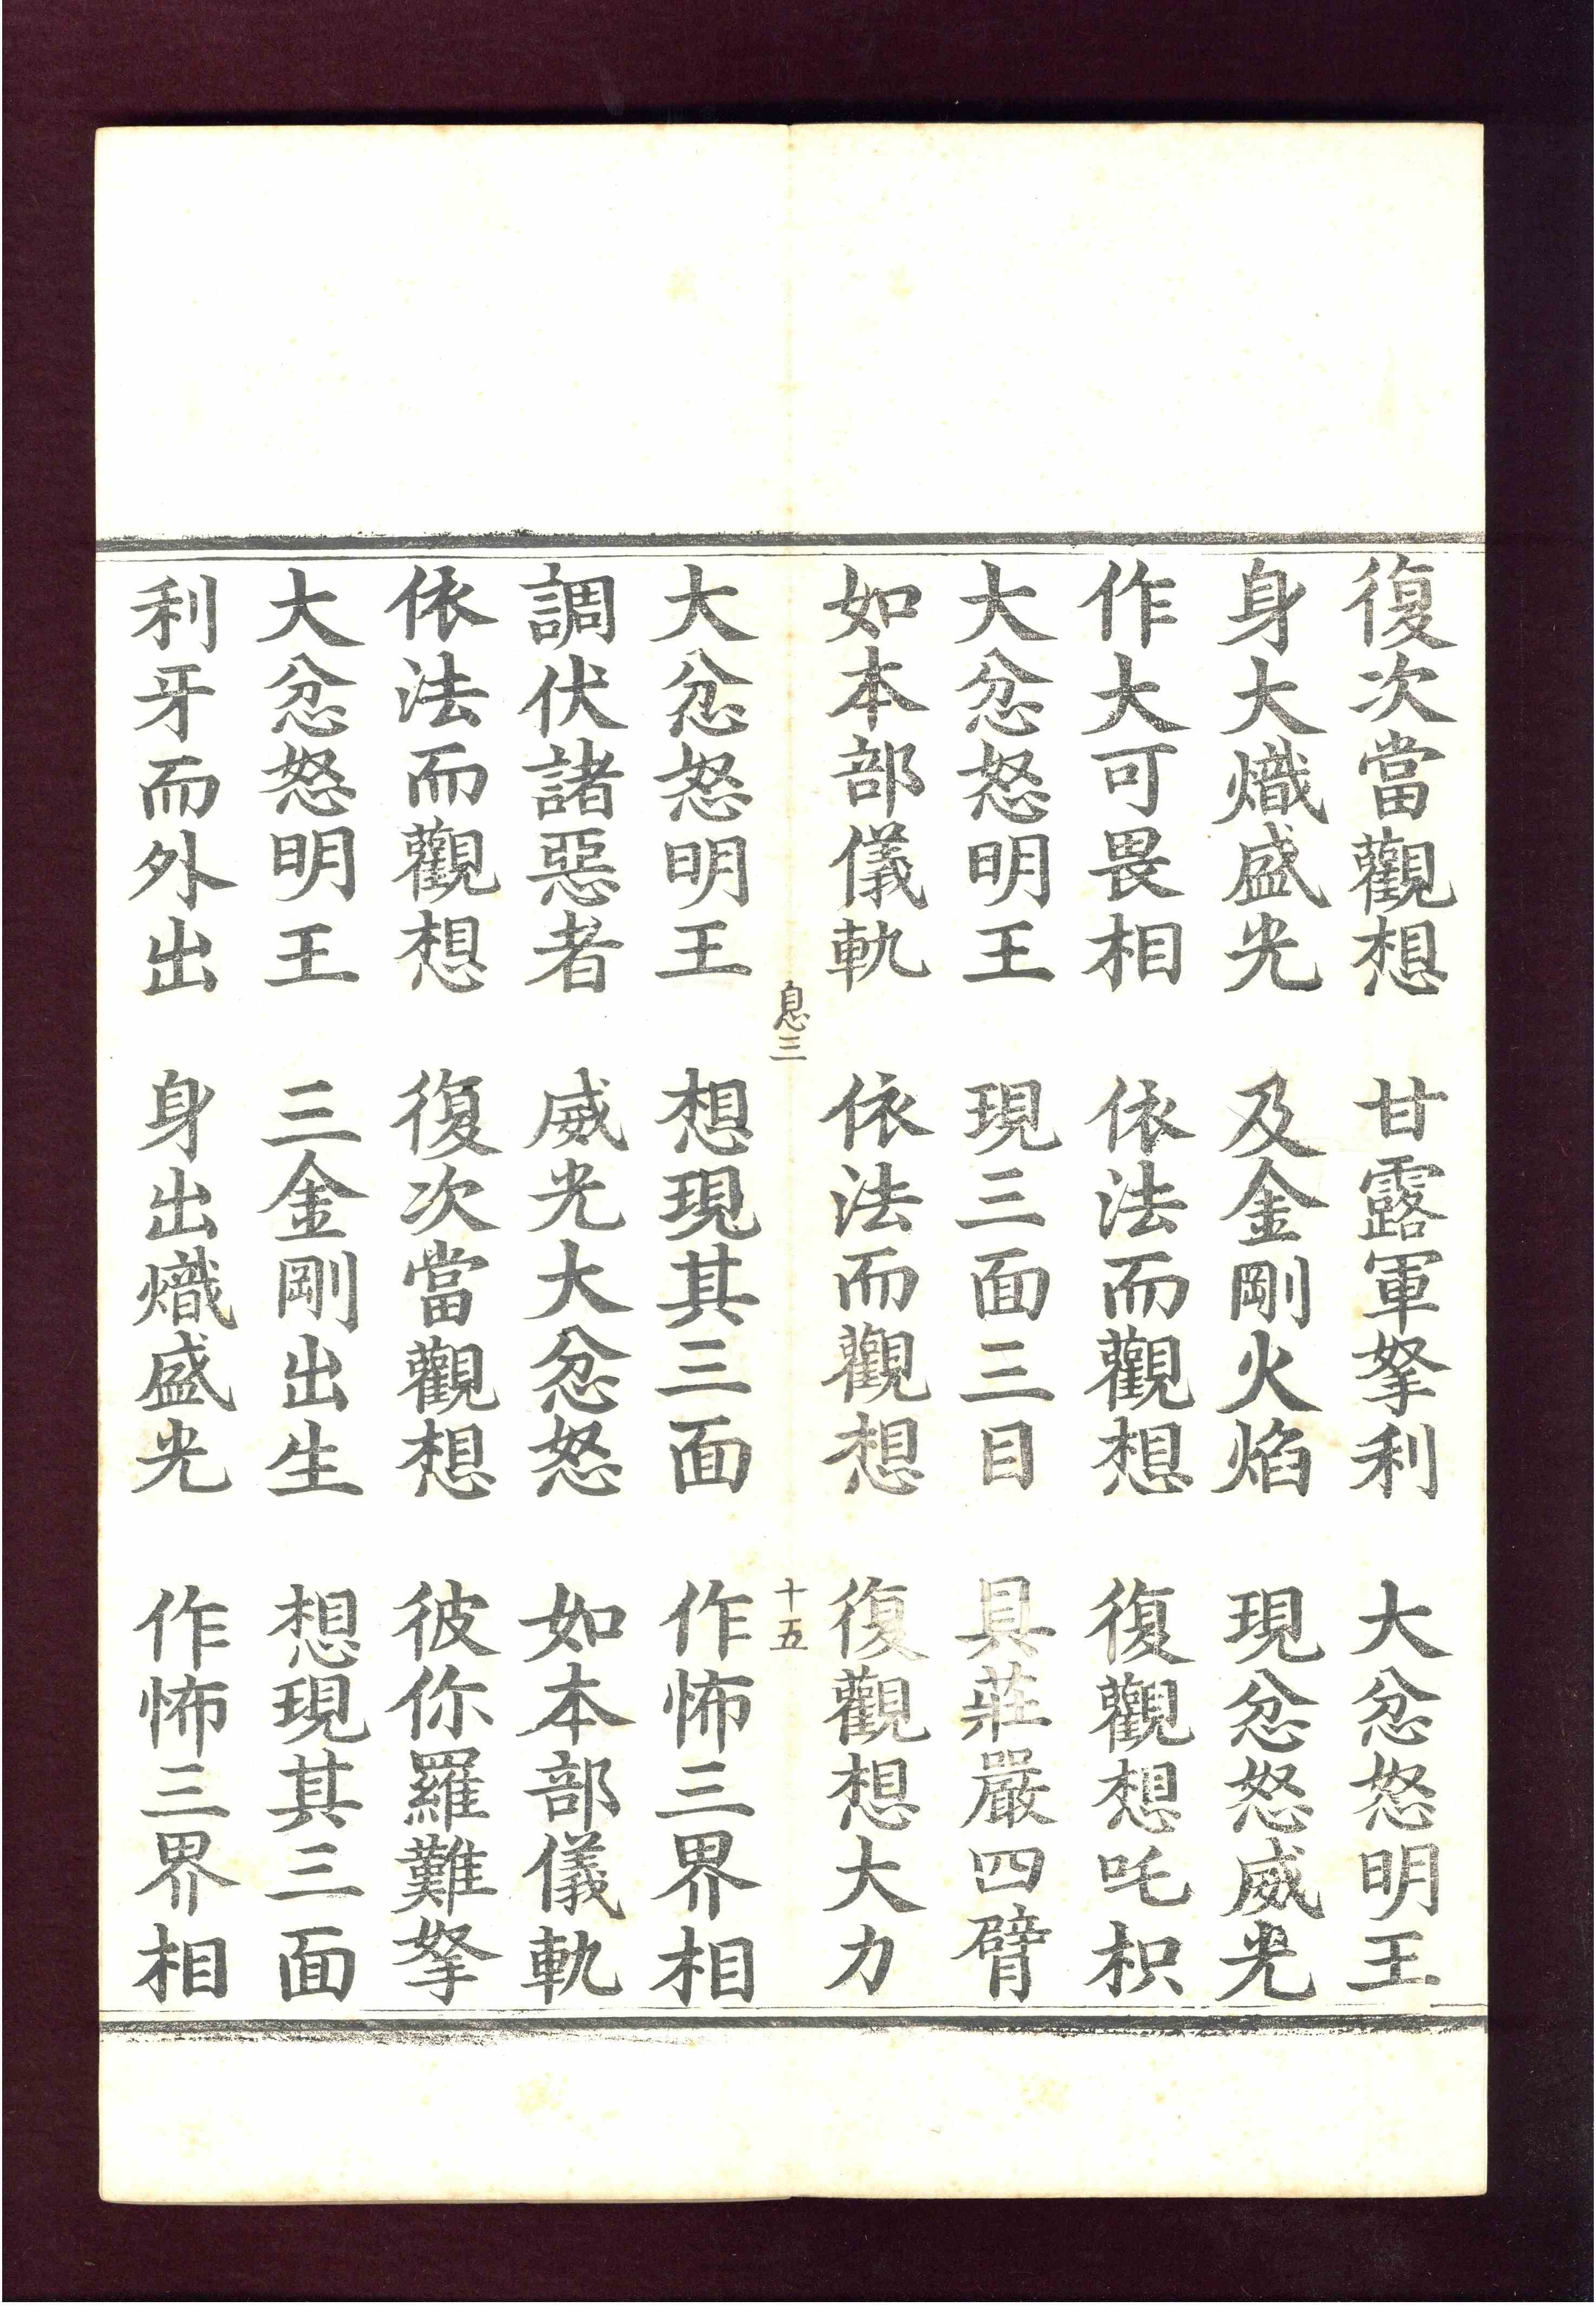 復次當觀想　甘露軍拏利　大忿怒明王
身大熾盛光　及金剛火焰　現忿怒威光
作大可畏相　依法而觀想　復觀想吒枳
大忿怒明王　現三面三目　具莊嚴四臂
如本部儀軌　依法而觀想　復觀想大力
息三　十五
大忿怒明王　想現其三面　作怖三界相
調伏諸惡者　威光大忿怒　如本部儀軌
依法而觀想　復次當觀想　彼你羅難拏
大忿怒明王　三金剛出生　想現其三面
利牙而外出　身出熾盛光　作怖三界相